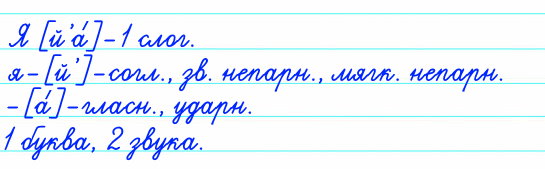 Я [й'а́]-1 слог.
я-[й']-согл., зв. непарн., мягк. непарн.
-[а́]-гласн., ударн.
1 буква, 2 звука.